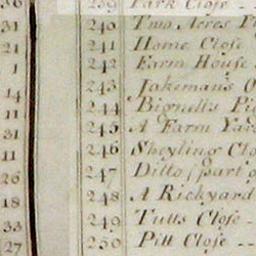 36 239 Park Close -
31 240 Two Acres
21 241 Home Close
1 242 Farm House
14 243 Jakeman's
11 244 Bignell's
31 245 A Farm Yard
11 246 Sheyling
26 247 Ditto (part
18 248 A Rickyard
33 249 Tutts Close -
27 250 Pitt Close --